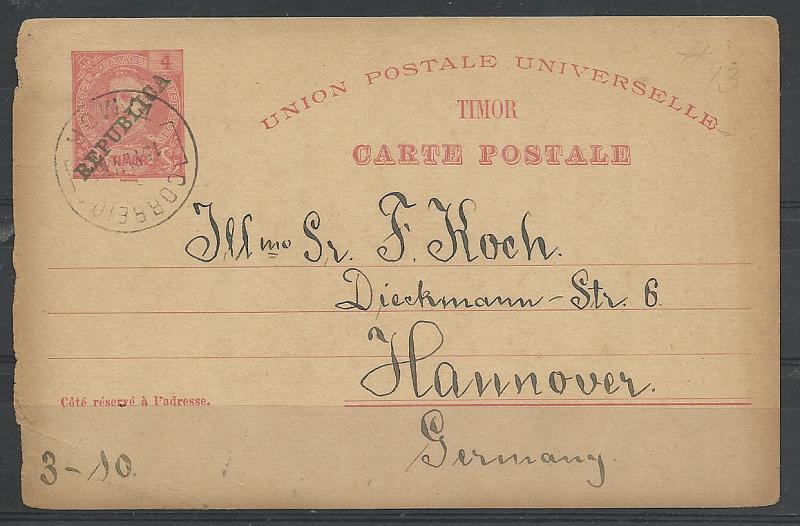 4
AVOS
REPUBLICA
CORREIO
# 13
UNION POSTALE UNIVERSELLE
TIMOR
CARTE POSTALE
Illmo Sr. F. Koch.
Dieckmann-Str. 6.
Hannover.
Côté réservé à l'adresse.
Germany.
3-10.